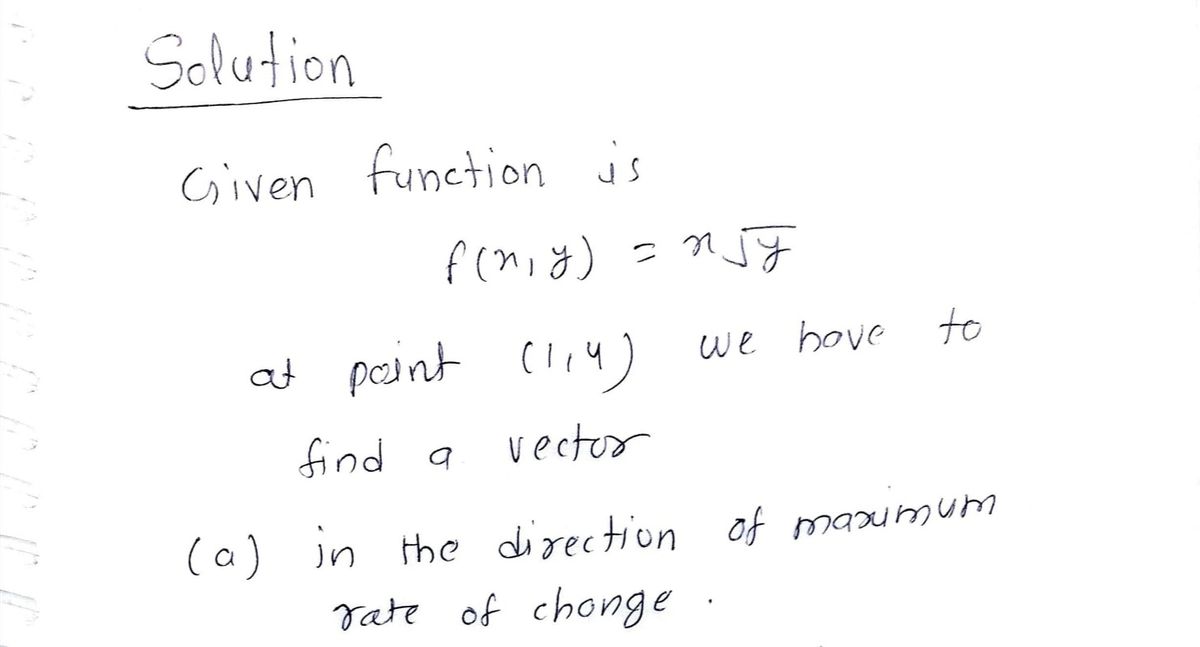 Solution
Given function is
f(x,y) = x√y
at point (1,4) we have to
find a vector
(a) in the direction of maximum
rate of change.